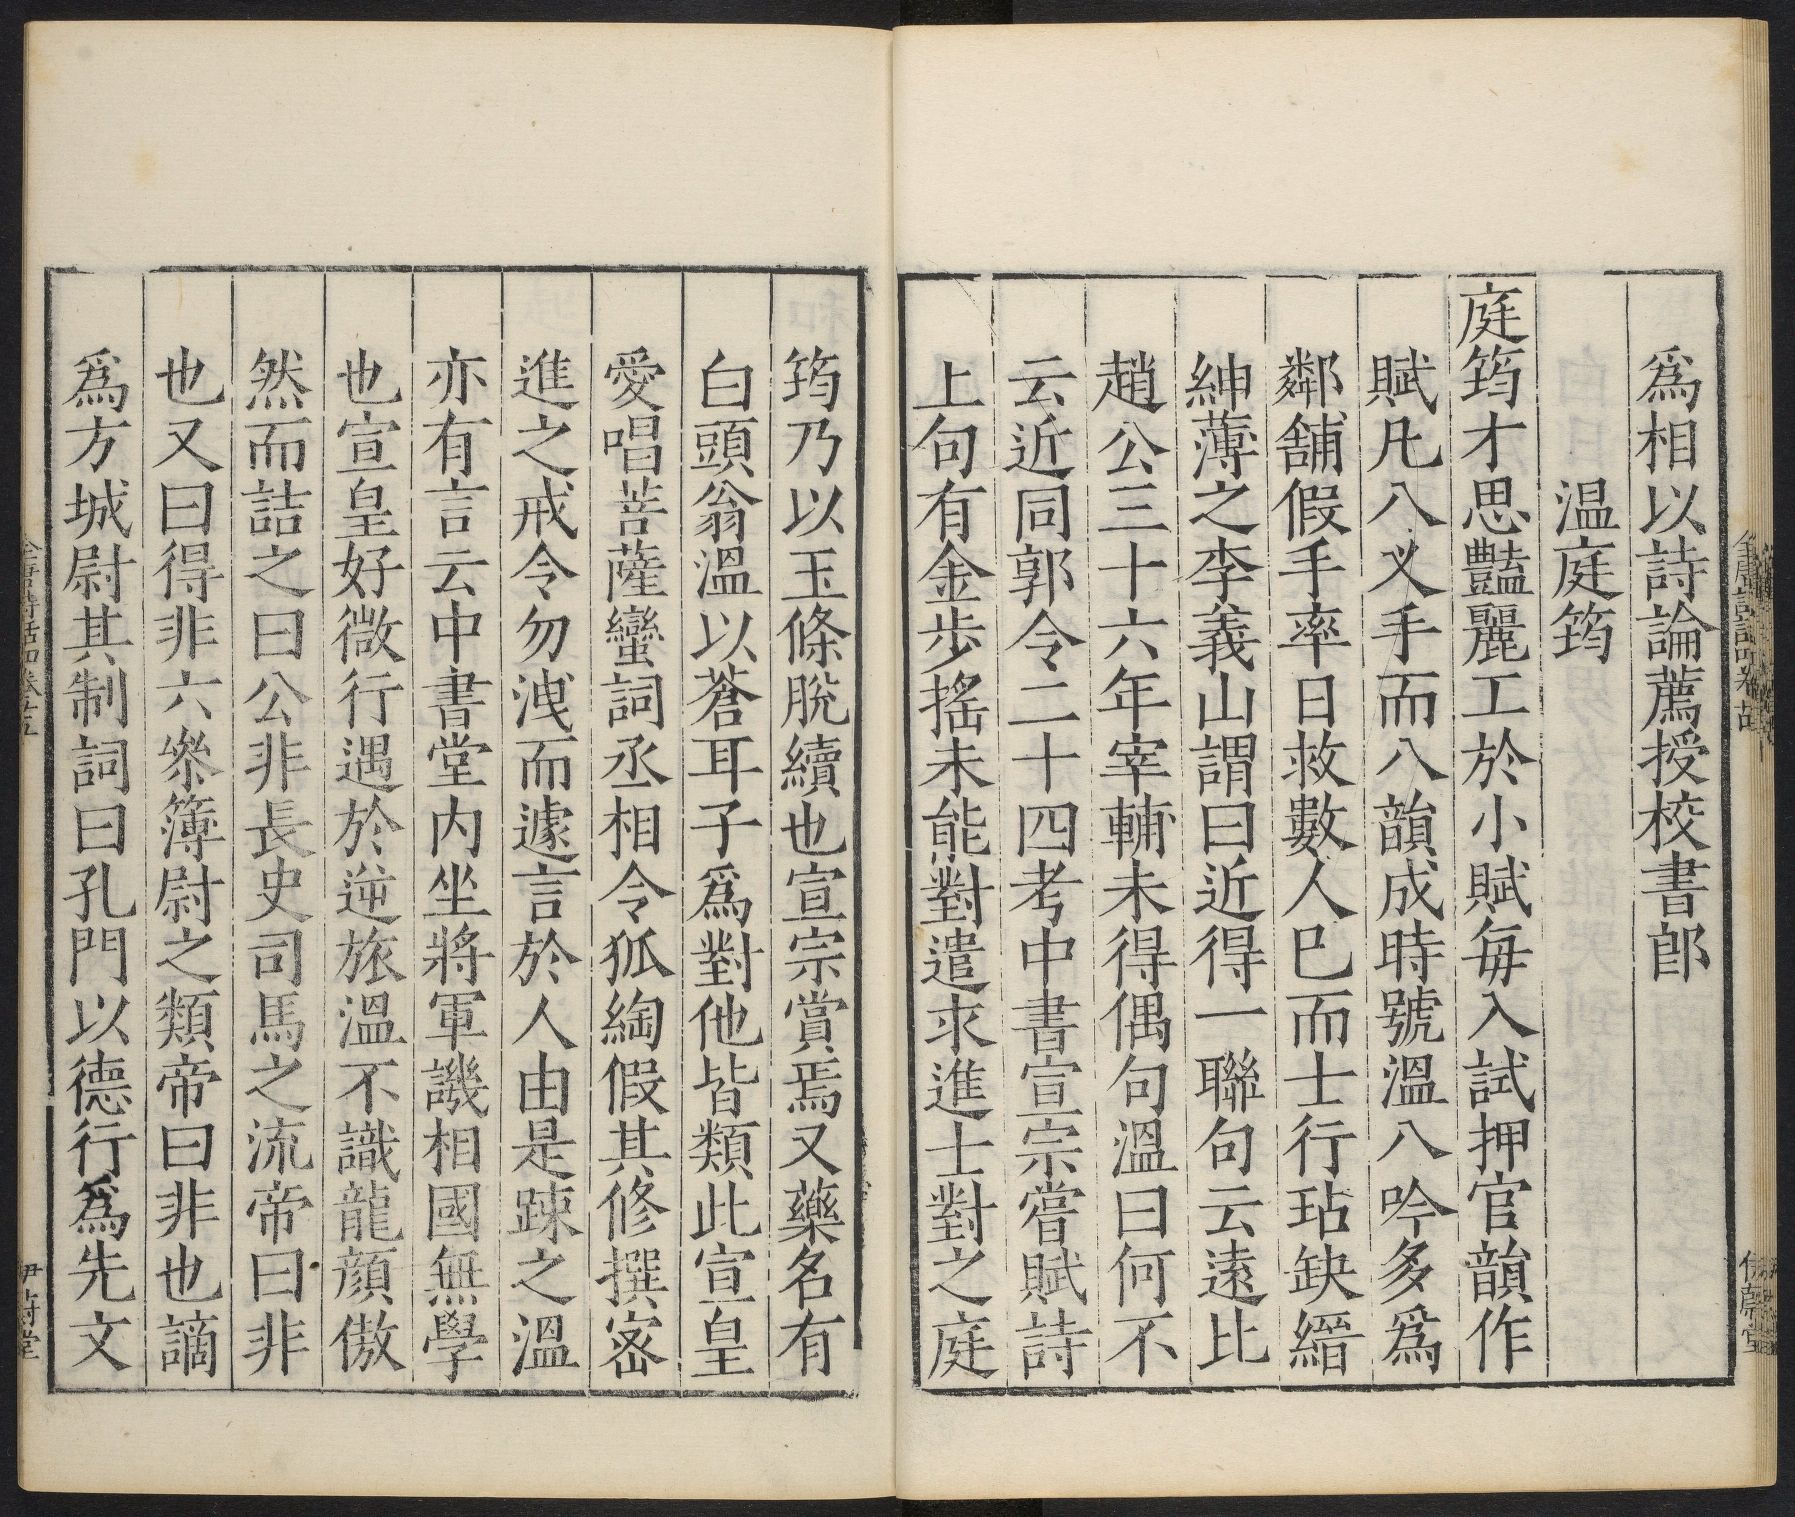 爲相以詩論薦授校書郎
温庭筠
庭筠才思豔麗工於小賦每入試押官韻作
賦凡八义手而八韻成時號溫八吟多爲
鄰舖假手率日救數人巳而士行玷缺縉
紳薄之李義山謂曰近得一聯句云遠比
趙公三十六年宰輔未得偶句溫曰何不
云近同郭令二十四考中書宣宗嘗賦詩
上句有金步搖未能對遣求進士對之庭
筠乃以玉條脫續也宣宗賞焉又藥名有
白頭翁溫以蒼耳子爲對他皆類此宣皇
愛唱菩薩蠻詞丞相令狐綯假其修撰密
進之戒令勿洩而遽言於人由是踈之溫
亦有言云中書堂内坐將軍譏相國無學
也宣皇好微行遇於逆旅溫不識龍顔傲
然而詰之曰公非長史司馬之流帝曰非
也又曰得非六叅簿尉之類帝曰非也謫
爲方城尉其制詞曰孔門以德行爲先文